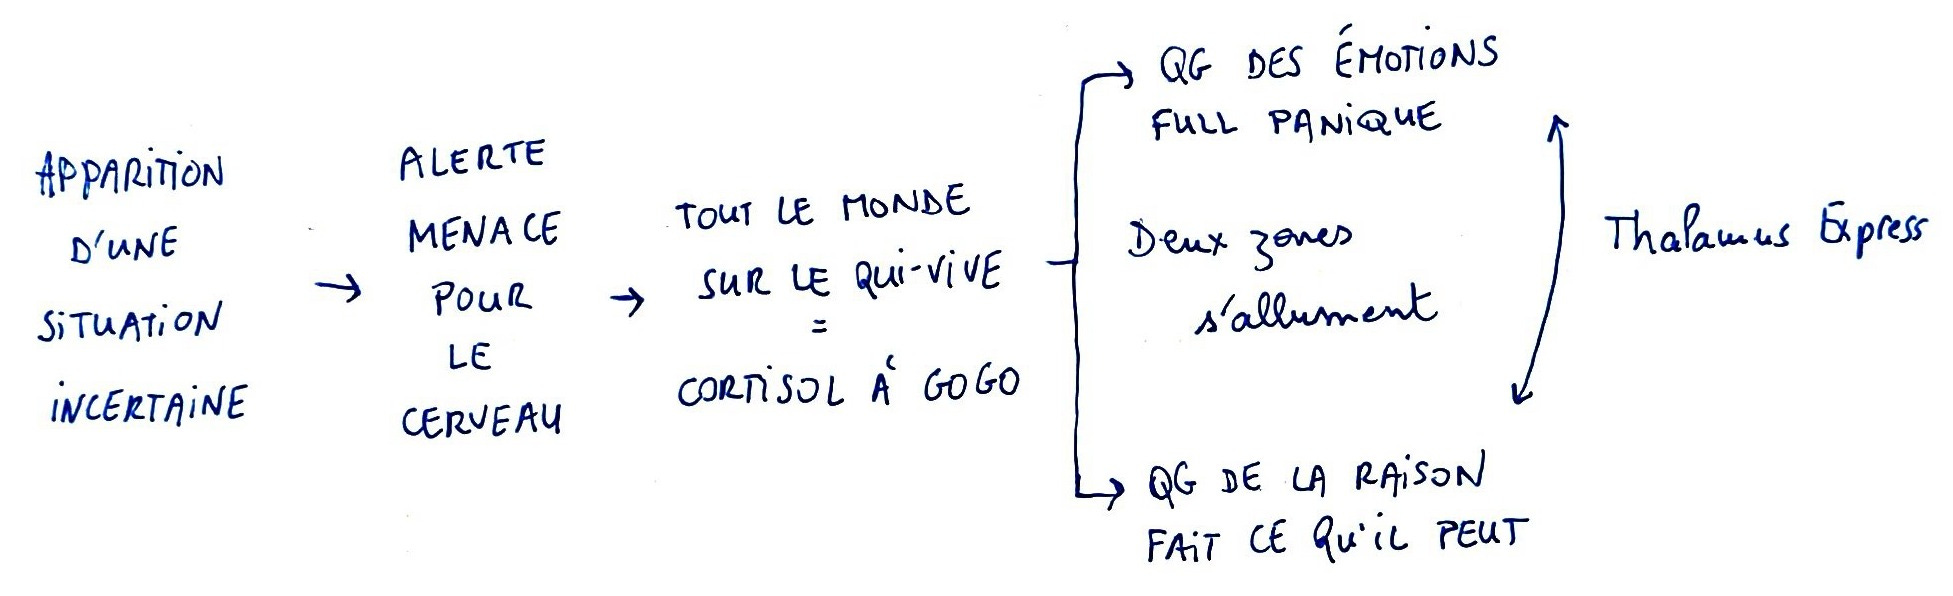 APPARITION
D'UNE
SITUATION
INCERTAINE
ALERTE
MENACE
POUR
LE
CERVEAU
TOUT LE MONDE
SUR LE QUI-VIVE
=
CORTISOL À GOGO
QG DES ÉMOTIONS
FULL PANIQUE
Deux zones
s'allument
QG DE LA RAISON
FAIT CE QU'IL PEUT
Thalamus Express